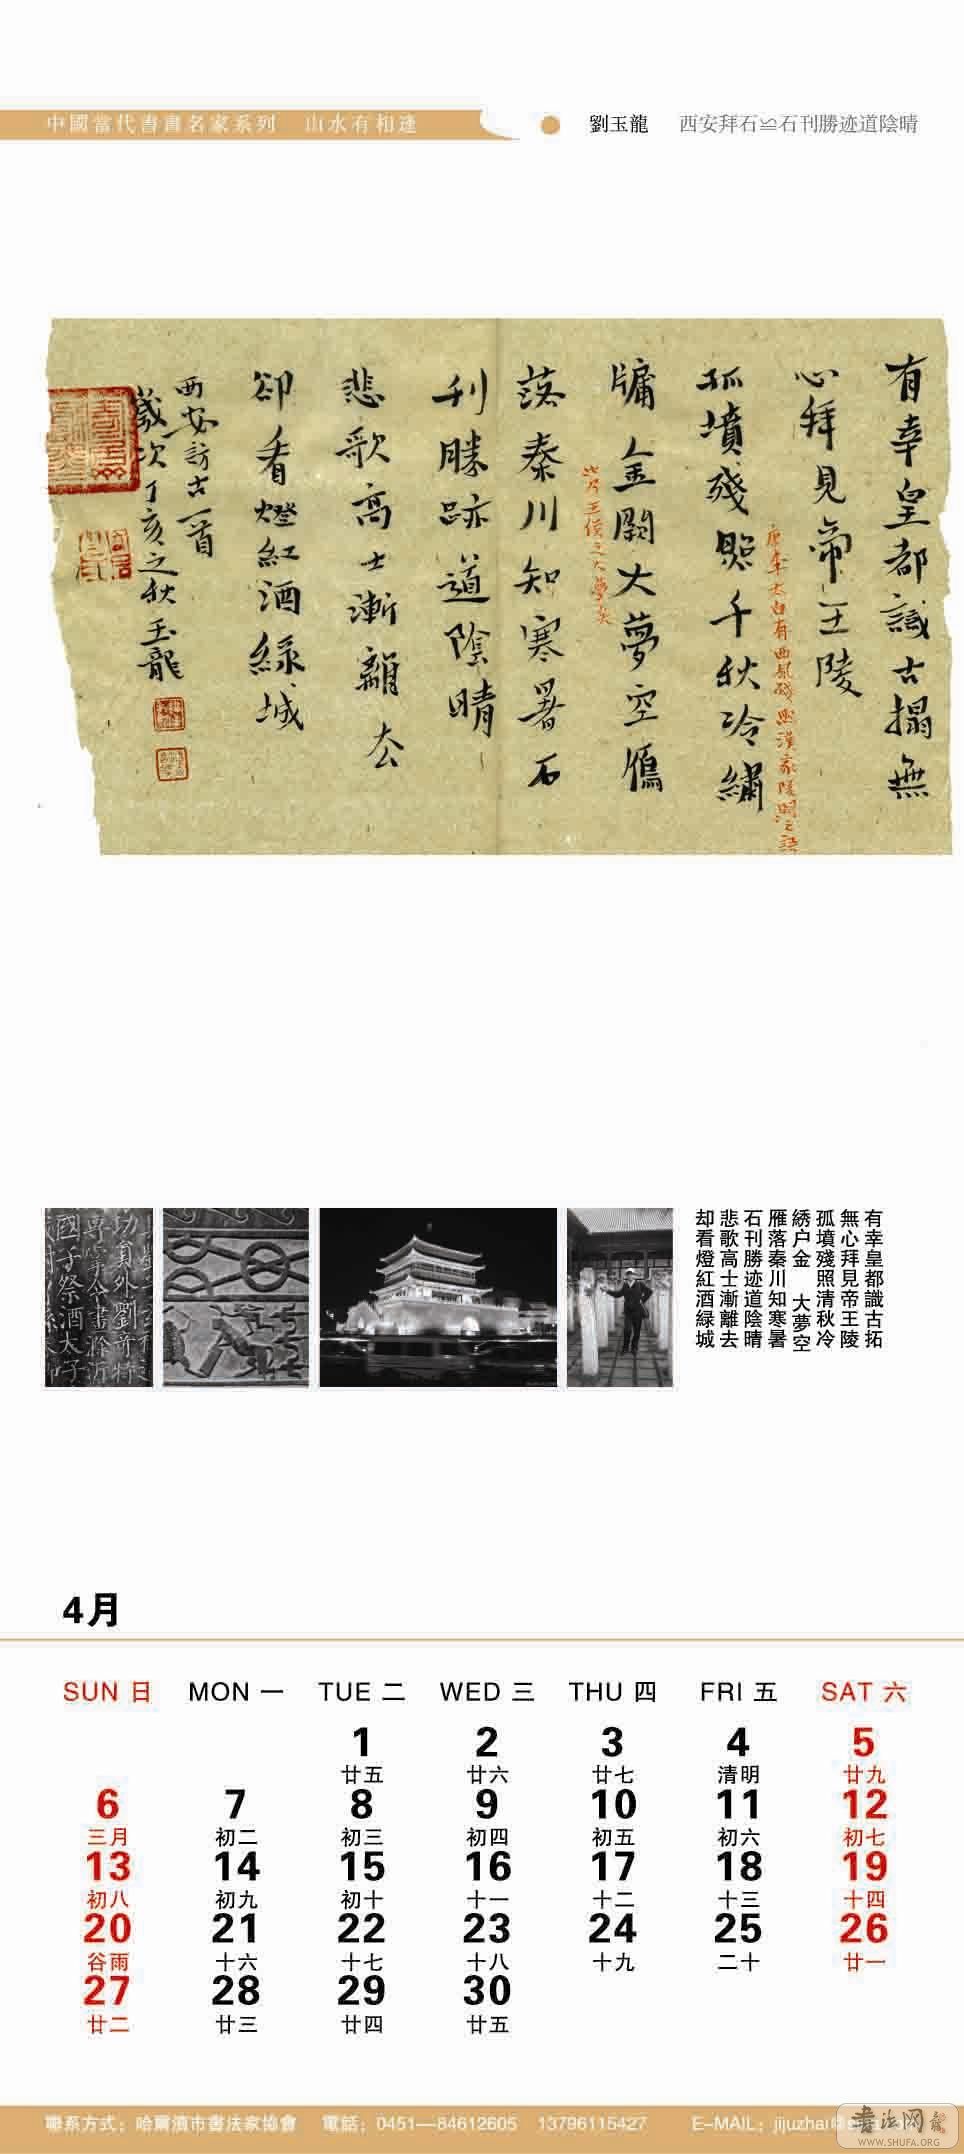 中國當代書畫名家系列 山水有相逢
劉玉龍 西安拜石≌石刊勝迹道陰晴
有幸皇都識古搨無
心拜見帝王陵
孤墳殘照千秋冷繡
牖金闕大夢空雁
落秦川知寒暑石
刊勝跡道陰晴
悲歌高士漸離去
卻看燈紅酒綠城
西安訪古一首
歲次丁亥之秋玉龍
有幸皇都識古拓
無心拜見帝王陵
孤墳殘照清秋冷
綉户金 大夢空
雁落秦川知寒暑
石刊勝迹道陰晴
悲歌高士漸離去
却看燈紅酒緑城
4月
SUN 日 MON 一 TUE 二 WED 三 THU 四 FRI 五 SAT 六
1 2 3 4 5
廿五 廿六 廿七 清明 廿九
6 7 8 9 10 11 12
三月 初二 初三 初四 初五 初六 初七
13 14 15 16 17 18 19
初八 初九 初十 十一 十二 十三 十四
20 21 22 23 24 25 26
谷雨 十六 十七 十八 十九 二十 廿一
27 28 29 30
廿二 廿三 廿四 廿五
聯系方式：哈爾濱市書法家協會 電話：0451—84612605 13796115427 E-MAIL：jijuzhai@
書法网
WWW.SHUFA.ORG